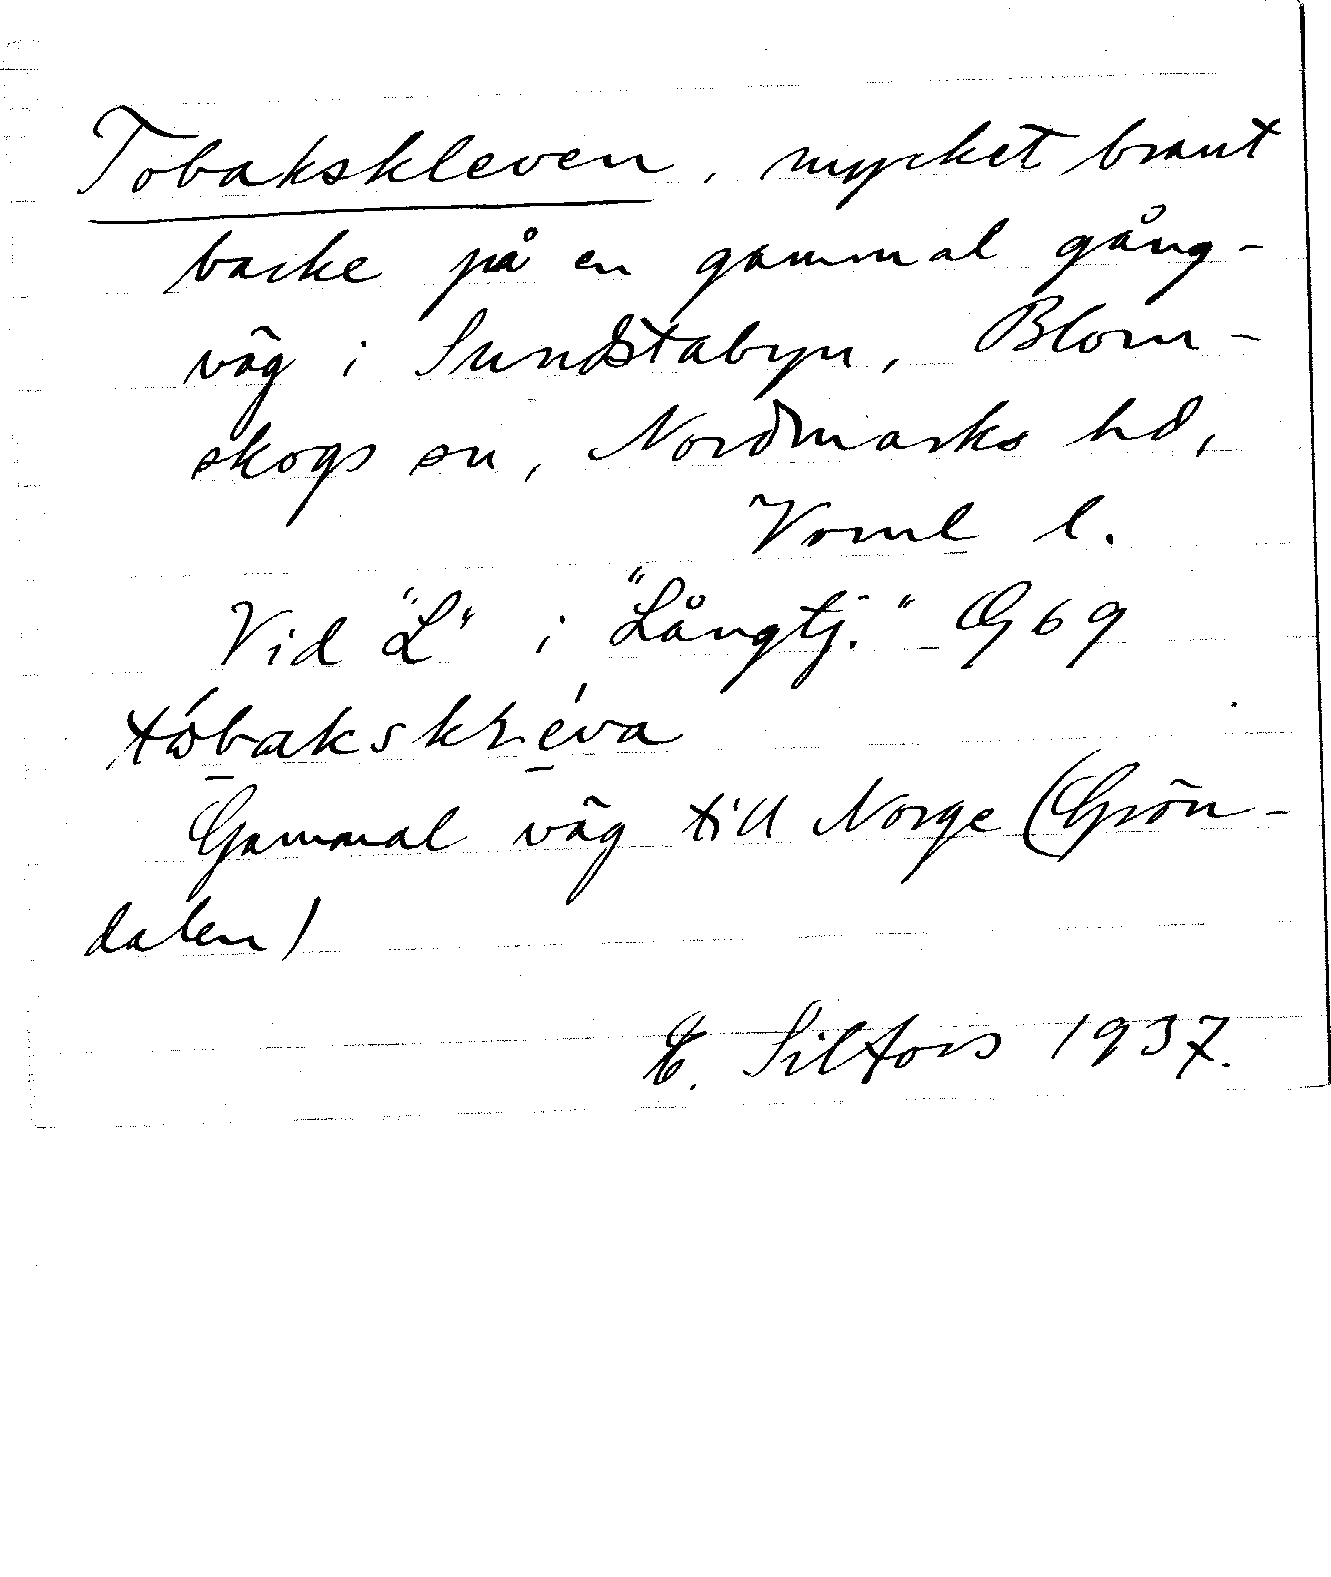 Tobakskleven, mycket brant
backe på en gammal gång-
väg i Sundstabyn, Blom-
skogs sn, Nordmarks hd,
Vrml l.
Vid "L" i "Långtj." G69
Gammal väg till Norge (Grön-
dalen)
E. Silfors 1937.